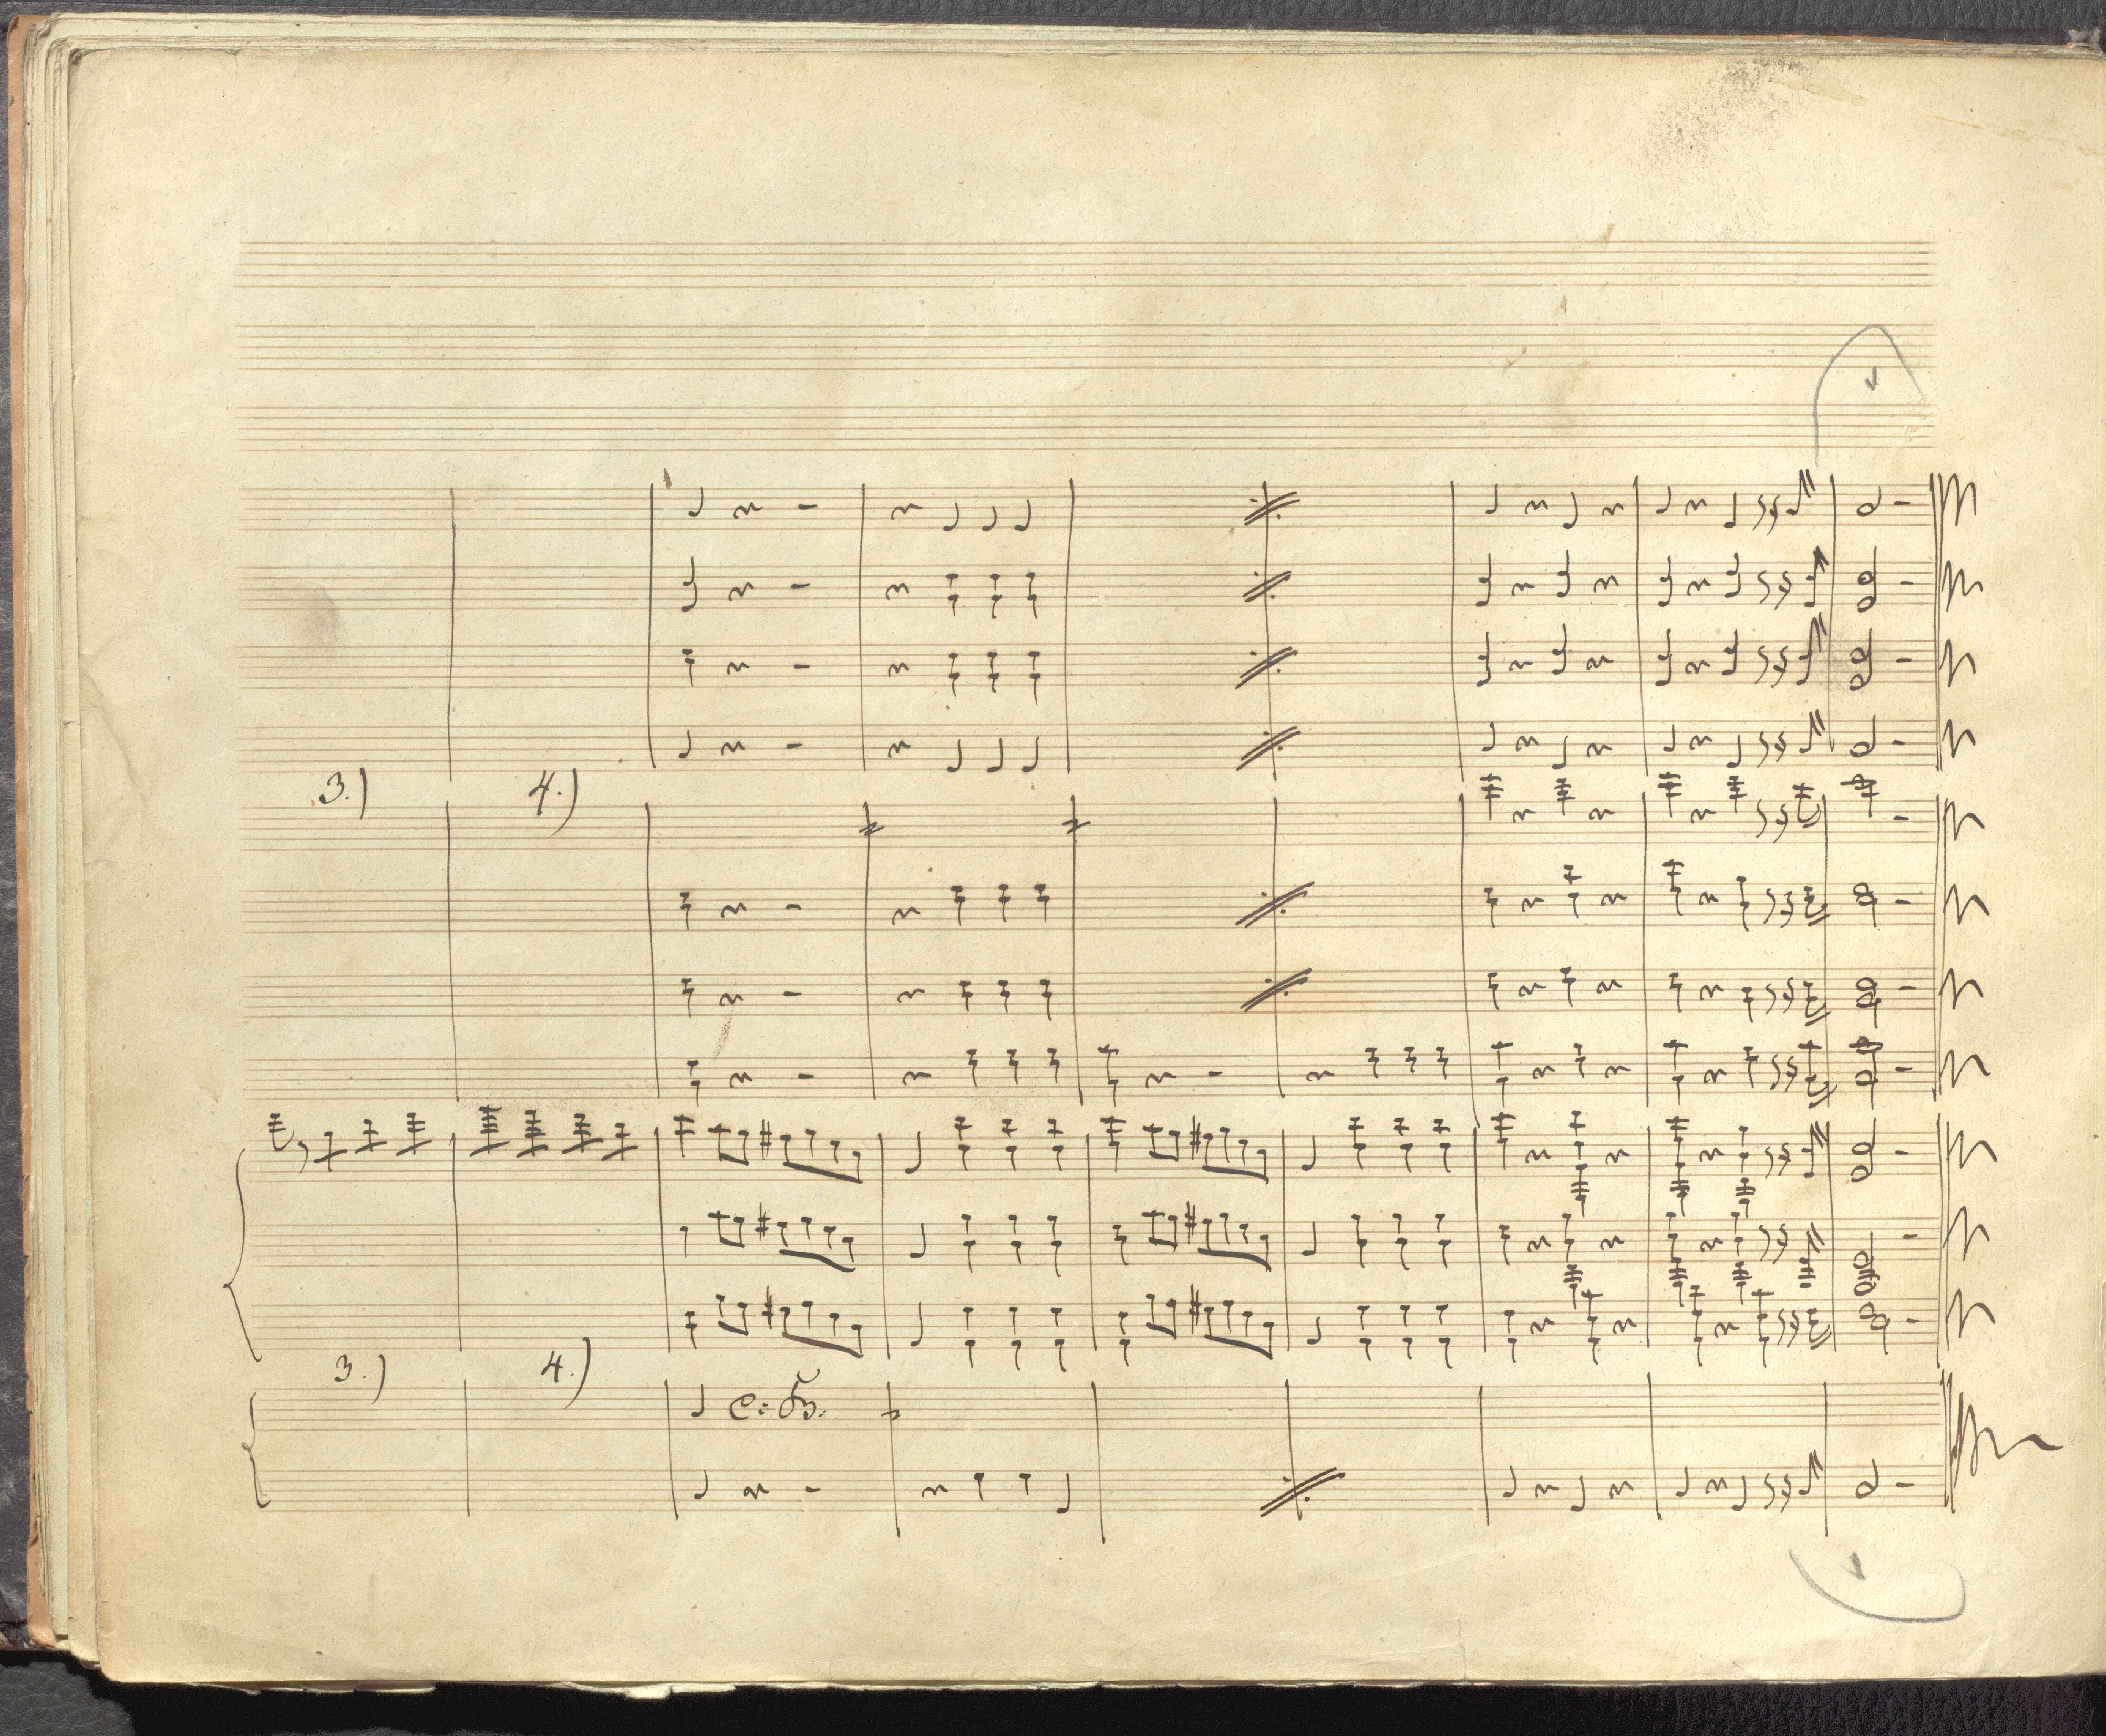 3.) 4.)
3.) 4.)
c: B: